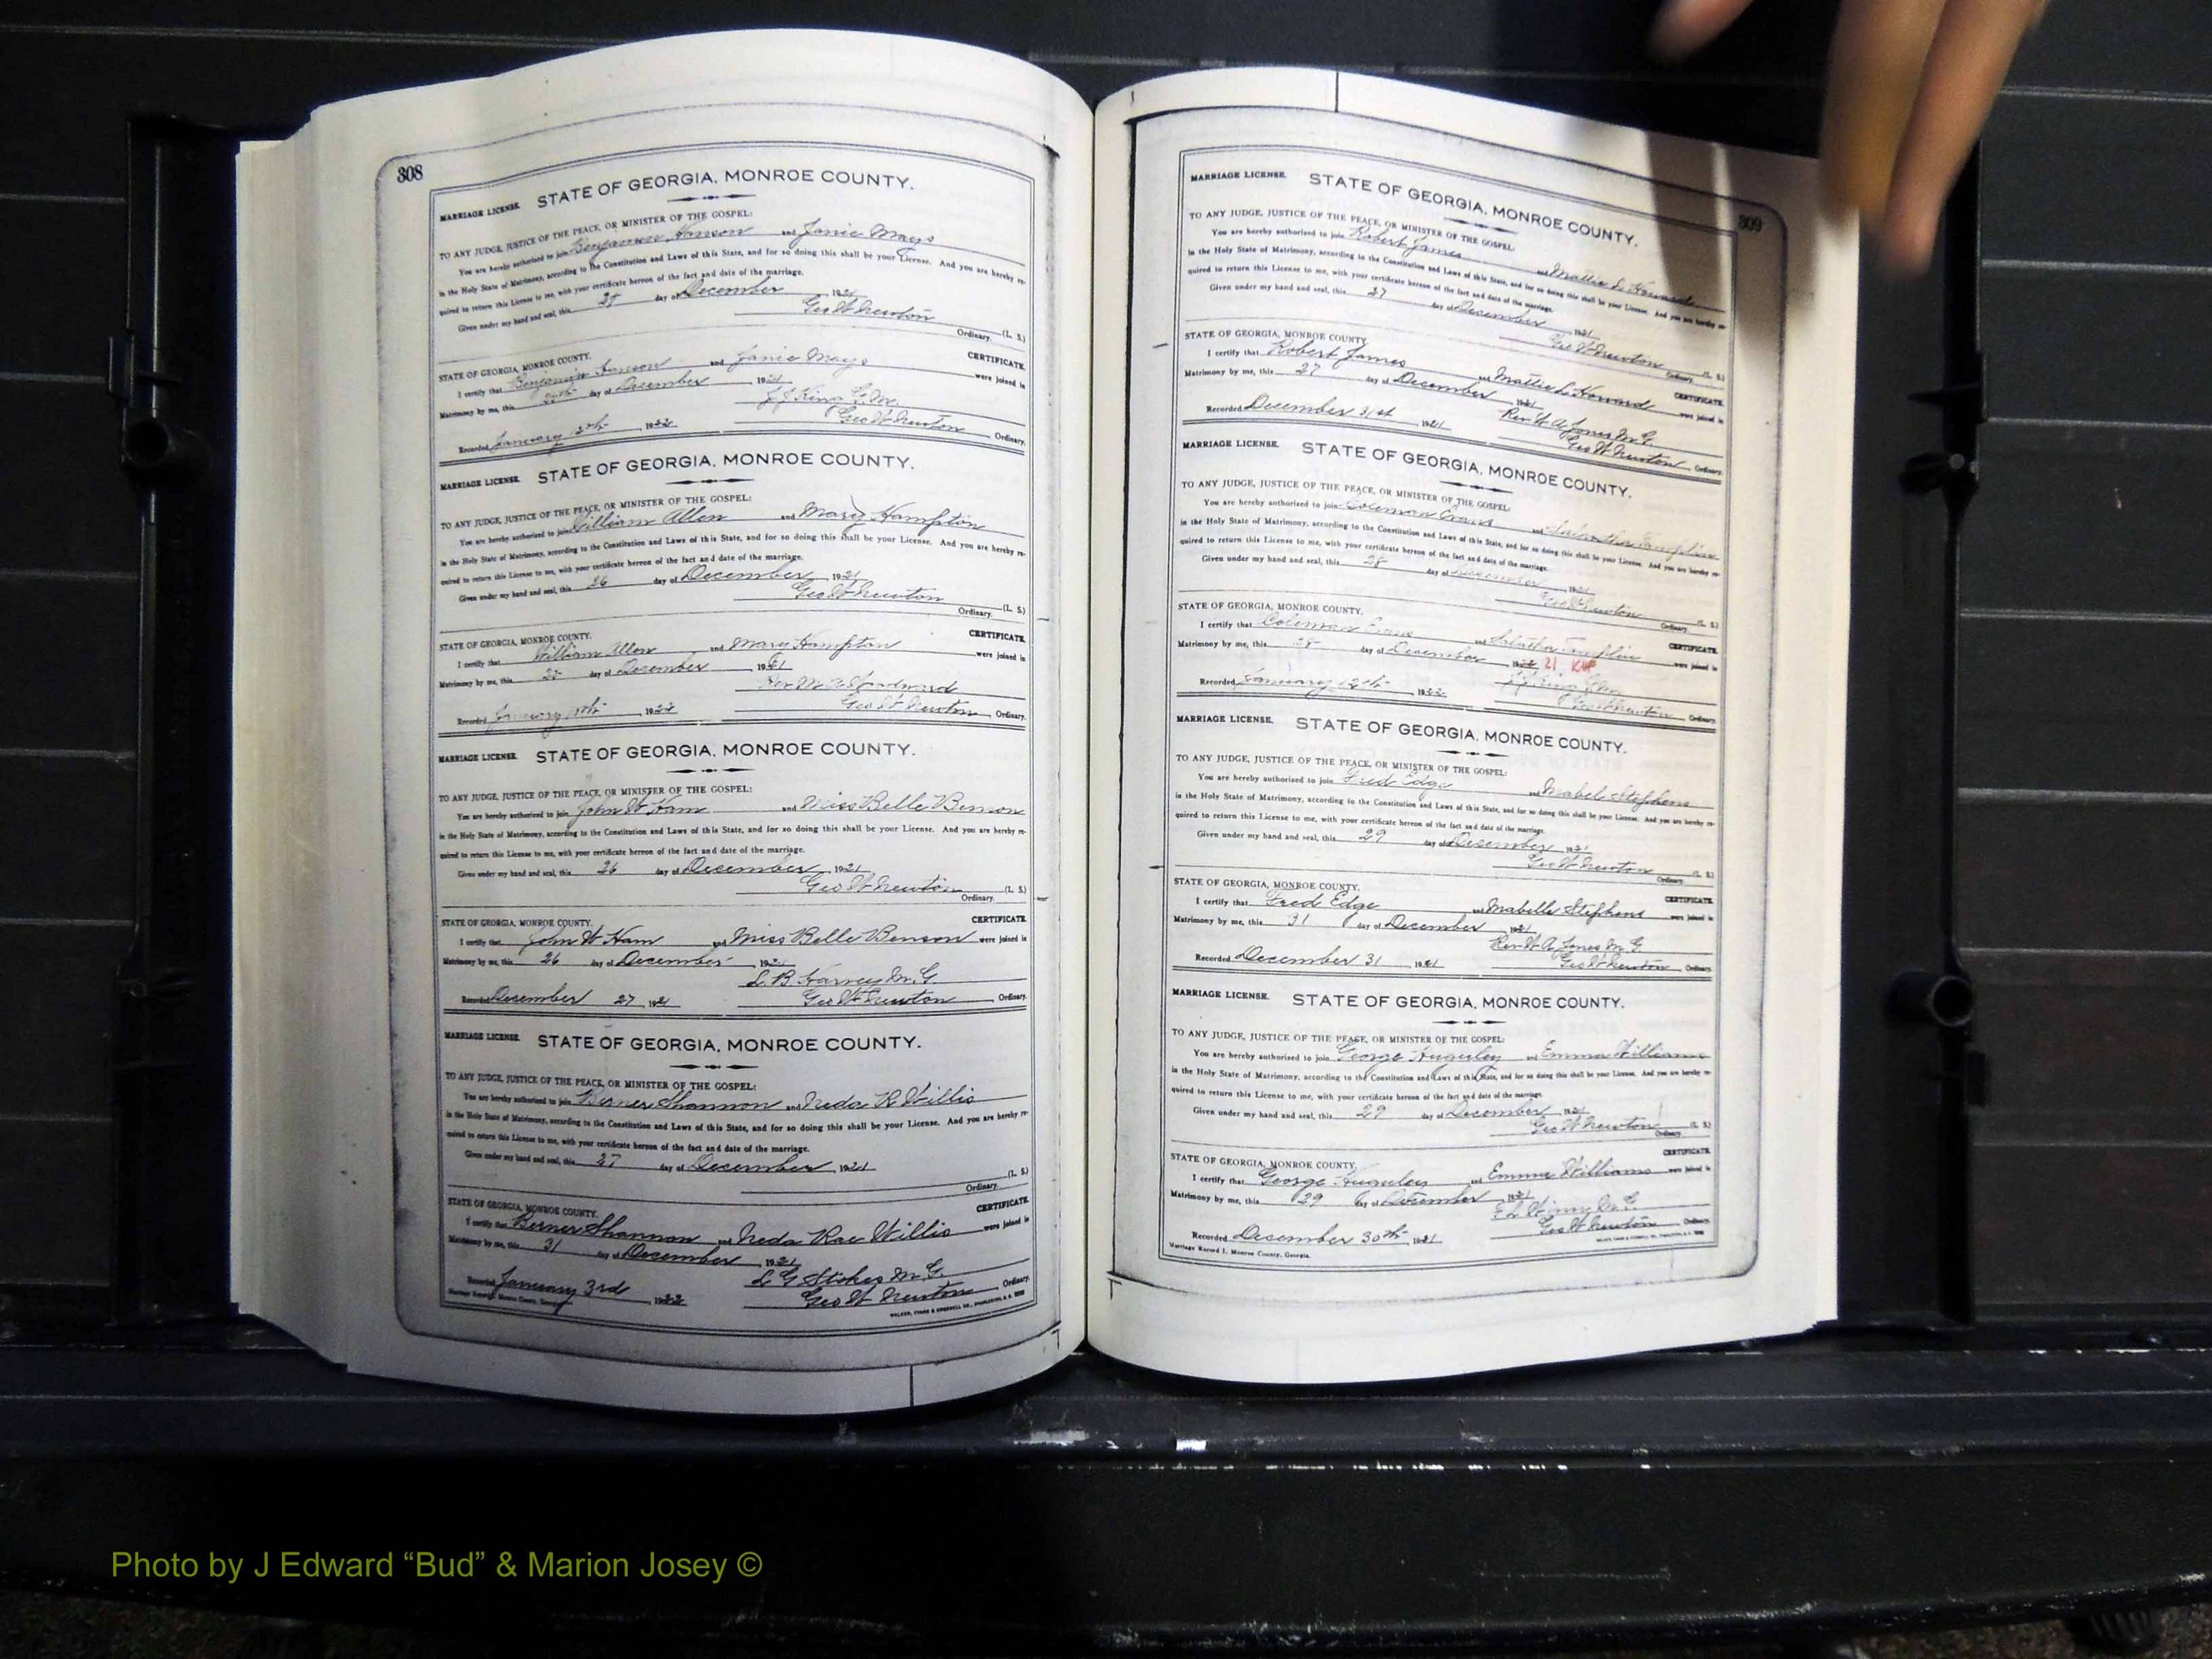 308
MARRIAGE LICENSE. STATE OF GEORGIA, MONROE COUNTY.
TO ANY JUDGE, JUSTICE OF THE PEACE, OR MINISTER OF THE GOSPEL:
You are hereby authorized to join Benjamin Hanson and Janie Mays
in the Holy State of Matrimony, according to the Constitution and Laws of this State, and for so doing this shall be your License. And you are hereby re-
quired to return this License to me, with your certificate hereon of the fact and date of the marriage.
Given under my hand and seal, this day of December 1921
Geo W Newton (L. S.)
Ordinary.
STATE OF GEORGIA, MONROE COUNTY. CERTIFICATE.
I certify that Benjamin Hanson and Janie Mays were joined in
Matrimony by me, this day of December 1921
J J King
Recorded January 1922 Geo W Newton Ordinary.
MARRIAGE LICENSE. STATE OF GEORGIA, MONROE COUNTY.
TO ANY JUDGE, JUSTICE OF THE PEACE, OR MINISTER OF THE GOSPEL:
You are hereby authorized to join William Allen and Mary Hampton
in the Holy State of Matrimony, according to the Constitution and Laws of this State, and for so doing this shall be your License. And you are hereby re-
quired to return this License to me, with your certificate hereon of the fact and date of the marriage.
Given under my hand and seal, this 26 day of December 1921
Geo W Newton (L. S.)
Ordinary.
STATE OF GEORGIA, MONROE COUNTY. CERTIFICATE.
I certify that William Allen and Mary Hampton were joined in
Matrimony by me, this day of December 1921
Rev M
Recorded January 1922 Geo W Newton Ordinary.
MARRIAGE LICENSE. STATE OF GEORGIA, MONROE COUNTY.
TO ANY JUDGE, JUSTICE OF THE PEACE, OR MINISTER OF THE GOSPEL:
You are hereby authorized to join John W Ham and Miss Belle Benson
in the Holy State of Matrimony, according to the Constitution and Laws of this State, and for so doing this shall be your License. And you are hereby re-
quired to return this License to me, with your certificate hereon of the fact and date of the marriage.
Given under my hand and seal, this 26 day of December 1921
Geo W Newton (L. S.)
Ordinary.
STATE OF GEORGIA, MONROE COUNTY. CERTIFICATE.
I certify that John W Ham and Miss Belle Benson were joined in
Matrimony by me, this 26 day of December 1921
L. B. Harvey M. G.
Recorded December 27, 1921 Geo W Newton Ordinary.
MARRIAGE LICENSE. STATE OF GEORGIA, MONROE COUNTY.
TO ANY JUDGE, JUSTICE OF THE PEACE, OR MINISTER OF THE GOSPEL:
You are hereby authorized to join Berner Shannon and Neda R Willis
in the Holy State of Matrimony, according to the Constitution and Laws of this State, and for so doing this shall be your License. And you are hereby re-
quired to return this License to me, with your certificate hereon of the fact and date of the marriage.
Given under my hand and seal, this 27 day of December 1921
(L. S.)
Ordinary.
STATE OF GEORGIA, MONROE COUNTY. CERTIFICATE.
I certify that Berner Shannon and Neda Rae Willis were joined in
Matrimony by me, this 31 day of December 1921
L G Stokes M. G.
Recorded January 3rd 1922 Geo W Newton Ordinary.
309
MARRIAGE LICENSE. STATE OF GEORGIA, MONROE COUNTY.
TO ANY JUDGE, JUSTICE OF THE PEACE, OR MINISTER OF THE GOSPEL:
You are hereby authorized to join Robert James and Mattie L Howard
in the Holy State of Matrimony, according to the Constitution and Laws of this State, and for so doing this shall be your License. And you are hereby re-
quired to return this License to me, with your certificate hereon of the fact and date of the marriage.
Given under my hand and seal, this 27 day of December 1921
Geo W Newton (L. S.)
Ordinary.
STATE OF GEORGIA, MONROE COUNTY. CERTIFICATE.
I certify that Robert James and Mattie L Howard were joined in
Matrimony by me, this 27 day of December 1921
Rev W A Jones M. G.
Recorded December 31st 1921 Geo W Newton Ordinary.
MARRIAGE LICENSE. STATE OF GEORGIA, MONROE COUNTY.
TO ANY JUDGE, JUSTICE OF THE PEACE, OR MINISTER OF THE GOSPEL:
You are hereby authorized to join Coleman Evans and
in the Holy State of Matrimony, according to the Constitution and Laws of this State, and for so doing this shall be your License. And you are hereby re-
quired to return this License to me, with your certificate hereon of the fact and date of the marriage.
Given under my hand and seal, this 28 day of December 1921
Geo W Newton (L. S.)
Ordinary.
STATE OF GEORGIA, MONROE COUNTY. CERTIFICATE.
I certify that Coleman Evans and were joined in
Matrimony by me, this 28 day of December 21
J J King
Recorded January 12th 1922 Geo W Newton Ordinary.
MARRIAGE LICENSE. STATE OF GEORGIA, MONROE COUNTY.
TO ANY JUDGE, JUSTICE OF THE PEACE, OR MINISTER OF THE GOSPEL:
You are hereby authorized to join Fred Edge and Mabel Stephens
in the Holy State of Matrimony, according to the Constitution and Laws of this State, and for so doing this shall be your License. And you are hereby re-
quired to return this License to me, with your certificate hereon of the fact and date of the marriage.
Given under my hand and seal, this 29 day of December 1921
Geo W Newton (L. S.)
Ordinary.
STATE OF GEORGIA, MONROE COUNTY. CERTIFICATE.
I certify that Fred Edge and Mabelle Stephens were joined in
Matrimony by me, this 31 day of December 1921
Rev W A Jones M. G.
Recorded December 31 1921 Geo W Newton Ordinary.
MARRIAGE LICENSE. STATE OF GEORGIA, MONROE COUNTY.
TO ANY JUDGE, JUSTICE OF THE PEACE, OR MINISTER OF THE GOSPEL:
You are hereby authorized to join George and Emma Williams
in the Holy State of Matrimony, according to the Constitution and Laws of this State, and for so doing this shall be your License. And you are hereby re-
quired to return this License to me, with your certificate hereon of the fact and date of the marriage.
Given under my hand and seal, this 29 day of December 1921
Geo W Newton (L. S.)
Ordinary.
STATE OF GEORGIA, MONROE COUNTY. CERTIFICATE.
I certify that George and Emma Williams were joined in
Matrimony by me, this 29 day of December 1921
M. G.
Recorded December 30th 1921 Geo W Newton Ordinary.
Marriage Record I, Monroe County, Georgia.
Photo by J Edward “Bud” & Marion Josey ©